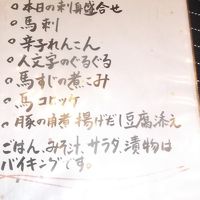 ○本日の刺身盛合せ
○馬刺
○辛子れんこん
○人文字のぐるぐる
○馬すじの煮こみ
○馬コロッケ
○豚の角煮 揚げだし豆腐添え
ごはん、みそ汁、サラダ、漬物は
バイキングです。